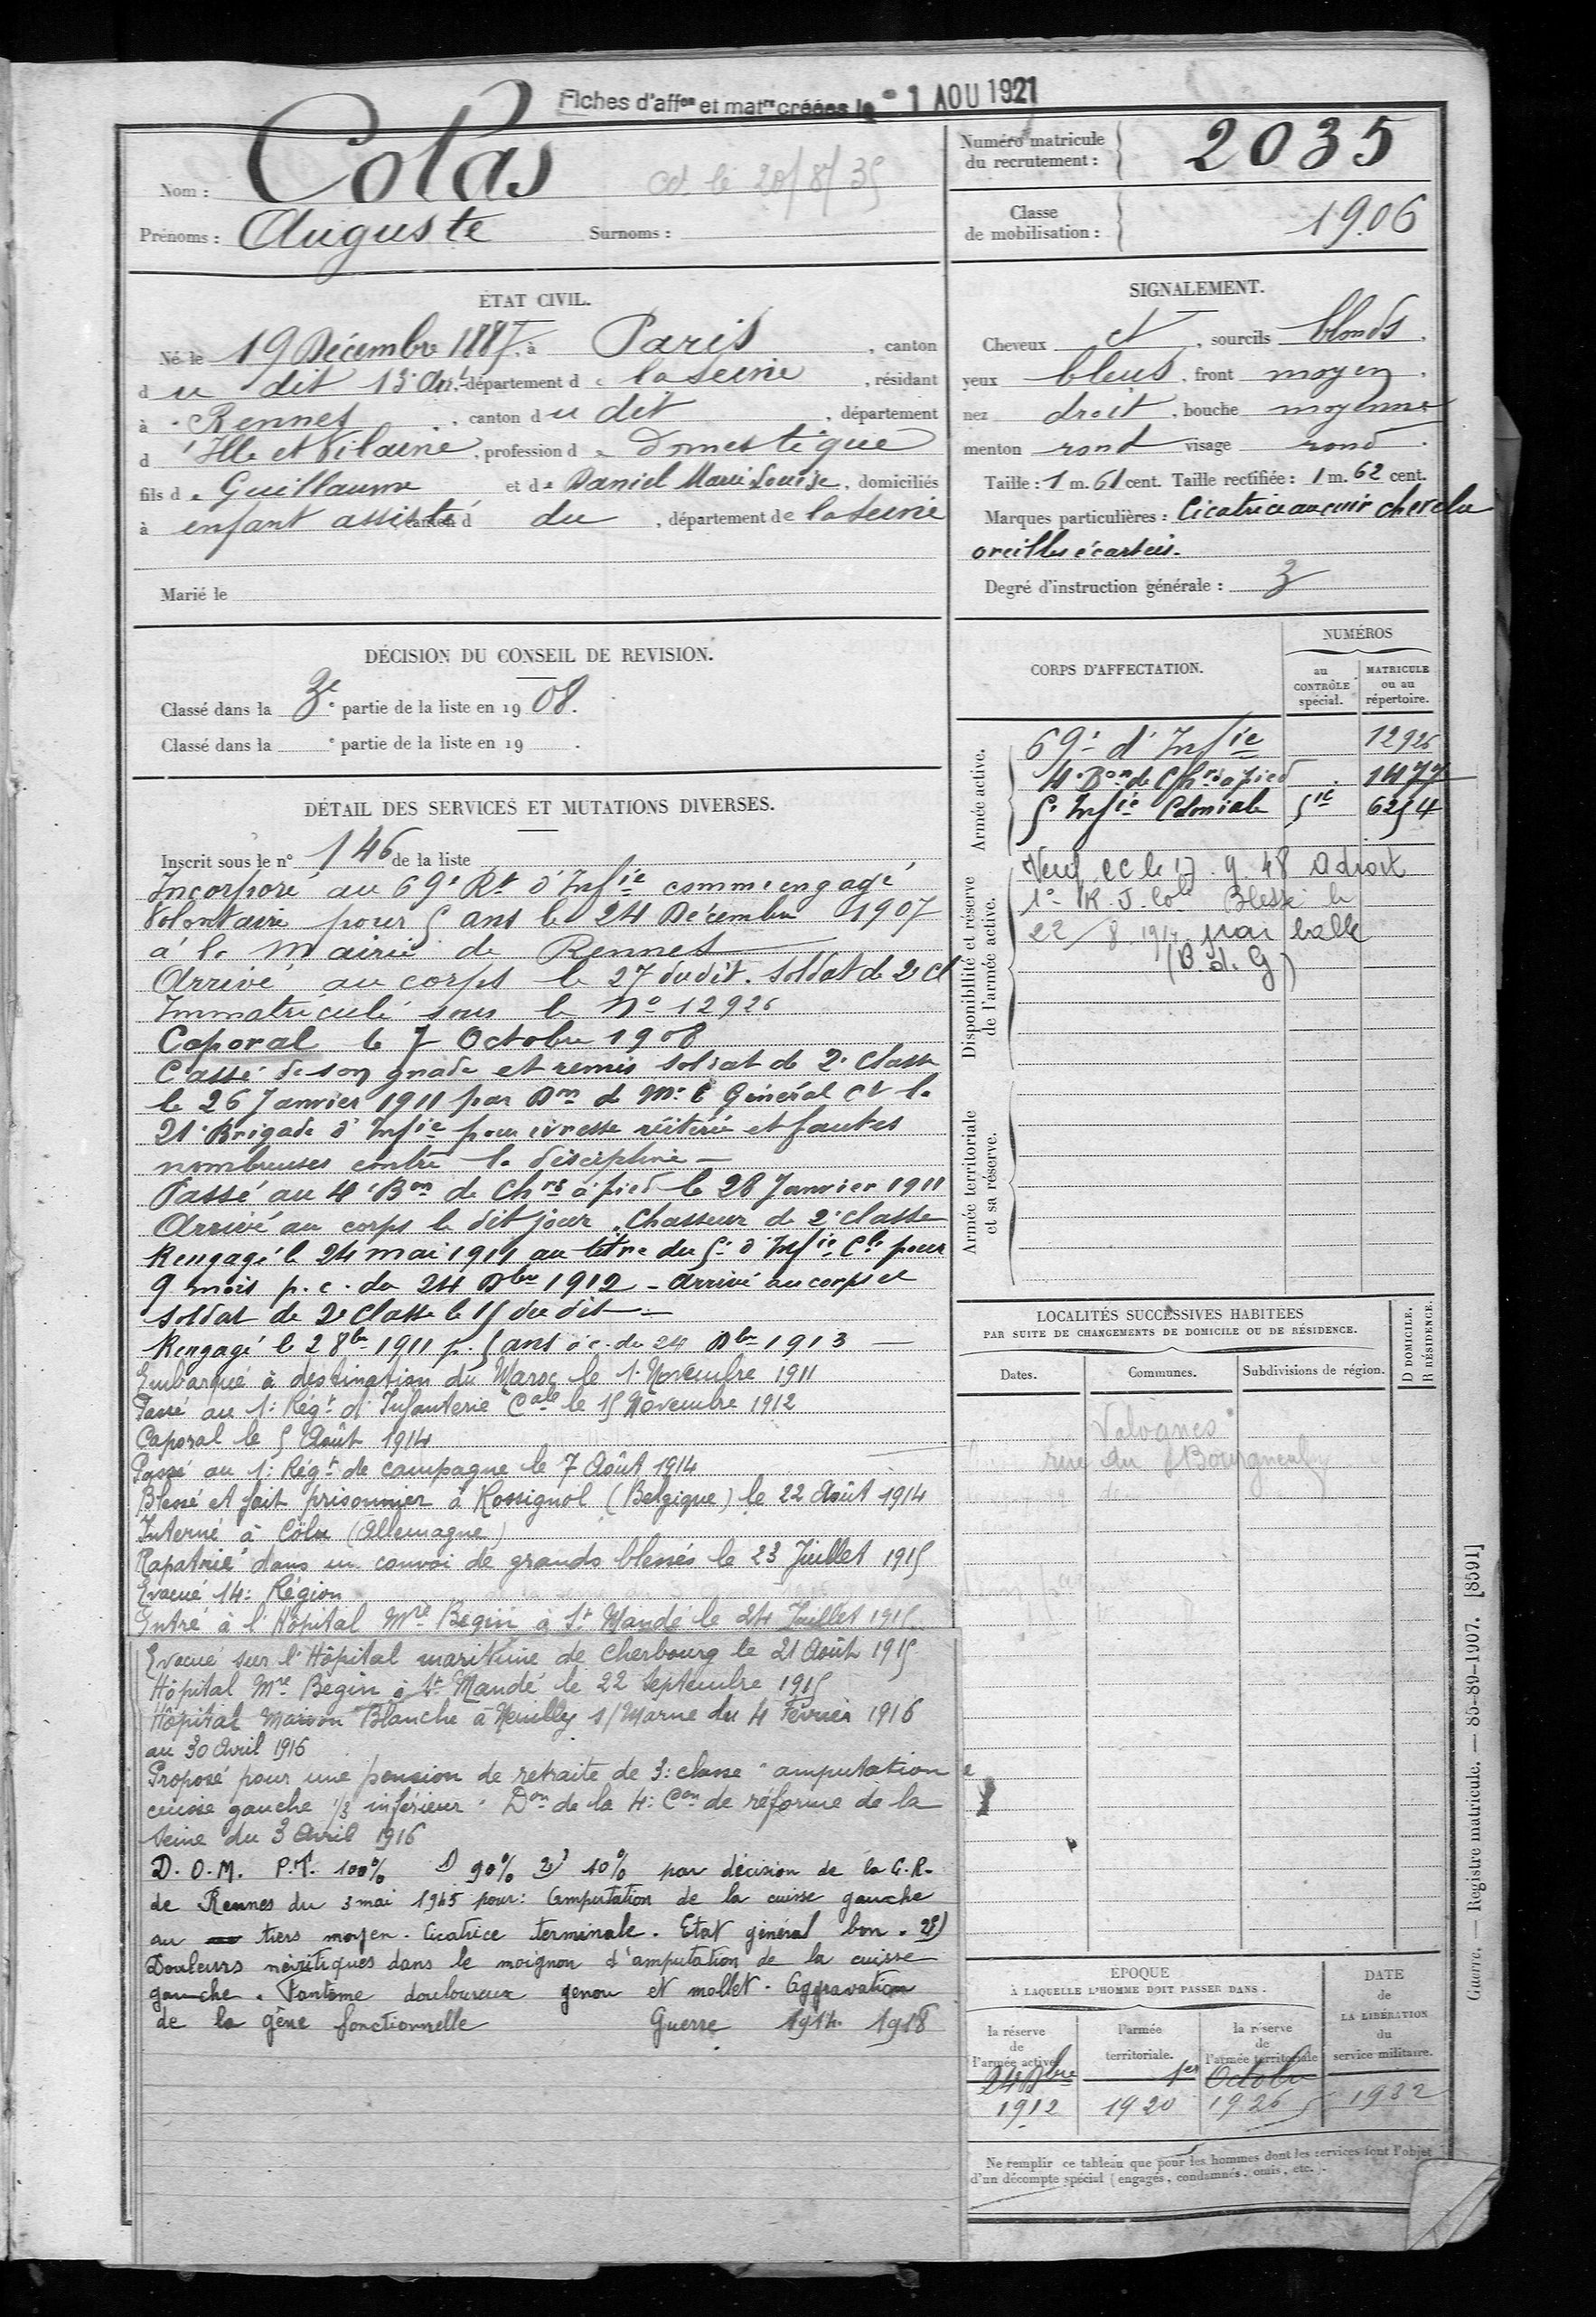 Fiches d'affon et matre créées le 1 AOU 1921
Nom : Colas
cd le 20/8/35
Prénoms : Auguste Surnoms :
Numéro matricule du recrutement : 2035
Classe de mobilisation : 1906
ÉTAT CIVIL.
Né le 19 Décembre 1887, à Paris, canton
du dit 13e Arrt, département de la Seine, résidant
à Rennes, canton du dit, département
d'Ille et Vilaine, profession de Domestique
fils de Guillaume et de Daniel Marie Louise, domiciliés
à enfant assisté canton d du, département de la Seine
Marié le
SIGNALEMENT.
Cheveux et, sourcils blonds,
yeux bleus, front moyen,
nez droit, bouche moyenne
menton rond visage rond.
Taille : 1 m. 61 cent. Taille rectifiée : 1 m. 62 cent.
Marques particulières : Cicatrice au cuir chevelu
oreilles écartées.
Degré d'instruction générale : 3
DÉCISION DU CONSEIL DE REVISION.
Classé dans la 3e partie de la liste en 1908.
Classé dans la e partie de la liste en 19 .
DÉTAIL DES SERVICES ET MUTATIONS DIVERSES.
Inscrit sous le n° 146 de la liste
Incorporé au 69e Rt d'Infie comme engagé
Volontaire pour 5 ans le 24 Décembre 1907
à la Mairie de Rennes
Arrivé au corps le 27 dudit. Soldat de 2e cl
Immatriculé sous le No 12926
Caporal le 7 Octobre 1908
Cassé de son grade et remis soldat de 2e classe
le 26 Janvier 1911 par Don de Mr le Général Ct la
21e Brigade d'Infie pour ivresse réitérée et fautes
nombreuses contre la discipline
Passé au 4e Bon de Chrs à pied le 28 Janvier 1911
Arrivé au corps le dit jour. Chasseur de 2e classe
Rengagé le 24 mai 1911 au titre du 5e d'Infie Cle pour
9 mois p. c. du 24 Dbre 1912 - arrivé au corps et
soldat de 2e Classe le 15 du dit
Rengagé le 2 8bre 1911 p. 5 ans à c. du 24 Dbre 1913
Embarqué à destination du Maroc le 1. Novembre 1911
Passé au 1: Régt d'Infanterie Cale le 15 Novembre 1912
Caporal le 5 Août 1914
Passé au 1: Régt de campagne le 7 Août 1914
Blessé et fait prisonnier à Rossignol (Belgique) le 22 Août 1914
Interné à Cöln (Allemagne)
Rapatrié dans un convoi de grands blessés le 23 Juillet 1915
Evacué 14: Région
Entré à l'Hôpital Mre Begin à St Mandé le 24 Juillet 1915
Evacué sur l'Hôpital maritime de Cherbourg le 21 Août 1915
Hôpital Mre Begin à St Mandé le 22 Septembre 1915
Hôpital Maison Blanche à Neuilly s/Marne du 4 Février 1916
au 30 Avril 1916
Proposé pour une pension de retraite de 3: classe "amputation
cuisse gauche 1/3 inférieur" Don de la 4: Con de réforme de la
Seine du 3 Avril 1916
D. O. M. P. T. 100% 1) 90% 2) 10% par décision de la C. R.
de Rennes du 3 mai 1945 pour: Amputation de la cuisse gauche
au tiers moyen. Cicatrice terminale. Etat général bon. 2)
Douleurs névritiques dans le moignon d'amputation de la cuisse
gauche. Fantôme douloureux genou et mollet. Aggravation
de la gêne fonctionnelle Guerre 1914 1918
CORPS D'AFFECTATION.
NUMÉROS
au CONTRÔLE spécial.
MATRICULE ou au répertoire.
Armée active.
69e d'Infie 12926
4e Bon de Chrs à pied 1477
5e Infie Coloniale 5ie 6254
Disponibilité et réserve de l'armée active.
le 17. 9. 48
Blessé le
22/8 1914 par balle
(B. d. G)
Armée territoriale et sa réserve.
LOCALITÉS SUCCESSIVES HABITÉES
PAR SUITE DE CHANGEMENTS DE DOMICILE OU DE RÉSIDENCE.
D DOMICILE. R RÉSIDENCE.
Dates. Communes. Subdivisions de région.
rue du
ÉPOQUE
À LAQUELLE L'HOMME DOIT PASSER DANS.
DATE de LA LIBÉRATION du service militaire.
la réserve de l'armée active
l'armée territoriale.
la réserve de l'armée territoriale
24 Dbre 1er Octobre
1912 1920 1926 1932
Ne remplir ce tableau que pour les hommes dont les services font l'objet
d'un décompte spécial (engagés, condamnés, omis, etc.).
Guerre. — Registre matricule. — 85-89-1907. [8591]